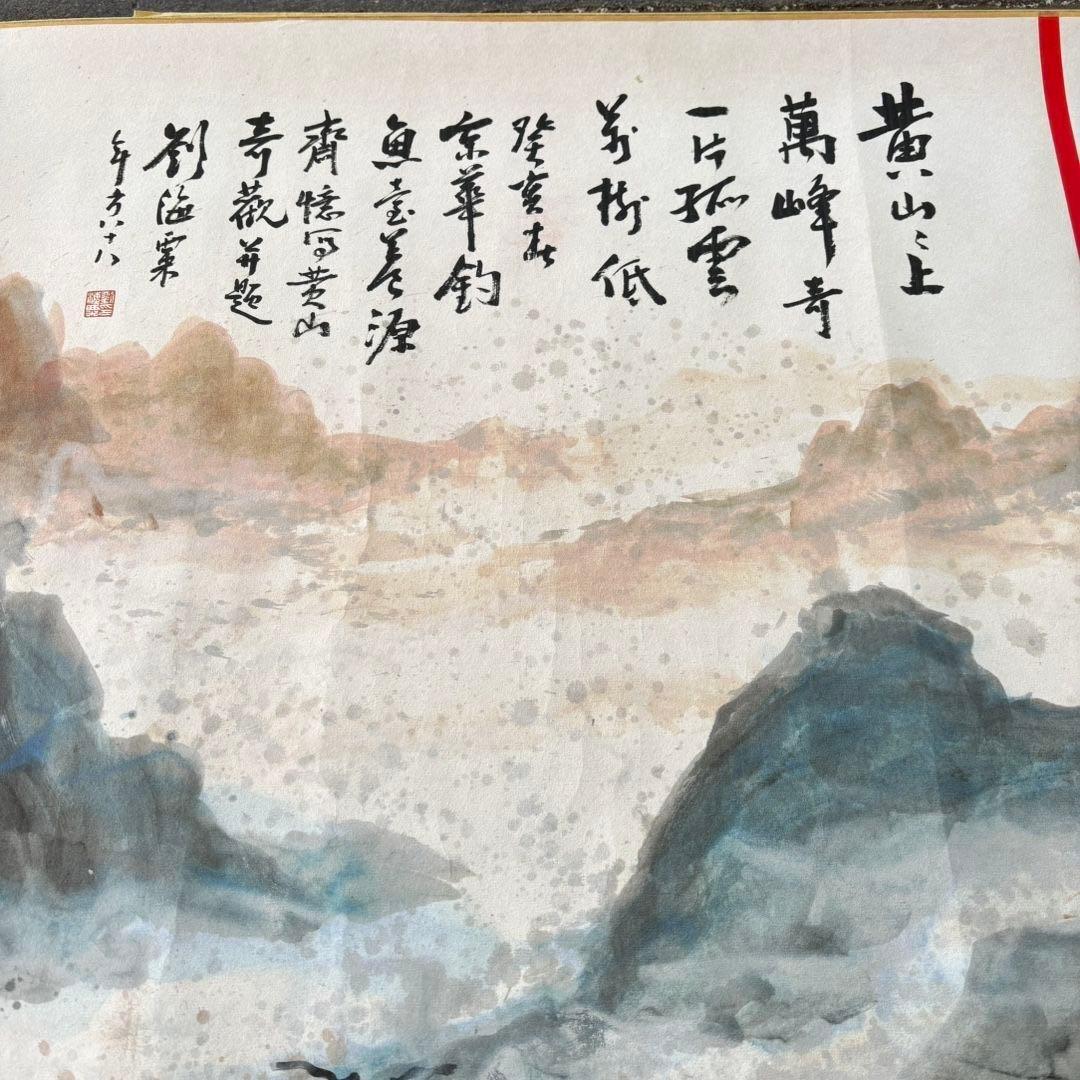 黄山々上
萬峰奇
一片孤雲
萬樹低
癸亥春
京華釣
魚臺養源
齊憶写黄山
奇觀并题
劉海粟
年方八十八